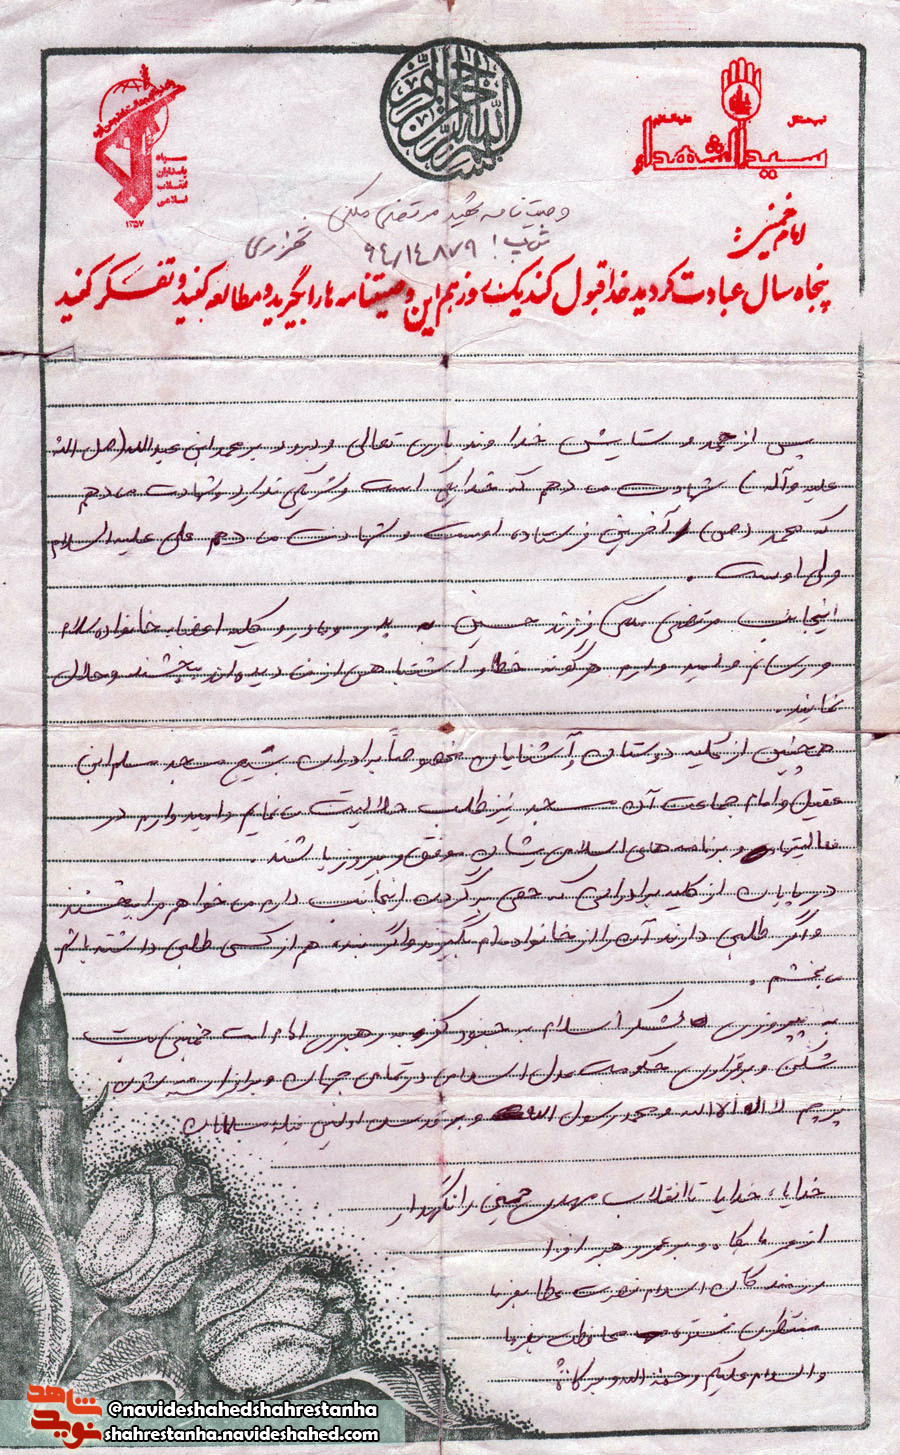 بسم الله الرحمن الرحیم
سپاه
پاسداران
انقلاب
اسلامی
۱۳۵۷
سیدالشهداء
علیه‌السلام
وصیت نامه شهید مرتضی ملکی
امام خمینی:
پنجاه سال عبادت کردید خدا قبول کند یک روز هم این وصیتنامه ها را بگیرید و مطالعه کنید و تفکر کنید
پس از حمد و ستایش خداوند باری تعالی و درود بر محمد ابن عبدالله (صل الله
علیه و آله) شهادت می دهم که خدا یکی است و شریکی ندارد و شهادت می دهم
که محمد (ص) آخرین فرستاده اوست و شهادت می دهم علی علیه السلام
ولی اوست .
اینجانب مرتضی ملکی فرزند حسین به پدر و مادر و کلیه اعضاء خانواده سلام
می رسانم و امید وارم هر گونه خطا و اشتباهی از من دیده اند ببخشند و حلال
نمایند .
همچنین از کلیه دوستان و آشنایان مخصوصاً برادران بسیج مسجد مسلم ابن
عقیل و امام جماعت آن مسجد نیز طلب حلالیت می نمایم و امید وارم در
فعالیتها و برنامه های اسلامی یشان موفق و پیروز باشند .
در پایان از کلیه برادرانی که حقی بر گردن اینجانب دارند می خواهم مرا ببخشند
و اگر طلبی دارند آن را از خانواده ام بگیرند و اگر بنده هم از کسی طلبی داشته باشم
می بخشم .
به پیروزی لشکر اسلام بر جنود کفر به رهبری امام امت خمینی بت
شکن و برقراری حکومت عدل اسلامی در تمامی جهان و برافراشته شدن
پرچم لا اله الا الله و محمد رسول الله و بر قدس اولین قبله مسلمانان
خدایا، خدایا تا انقلاب مهدی خمینی را نگهدار
از عمر ما بکاه و بر عمر رهبر افزا
رزمندگان اسلام نصرت عطا بفرما
محافظت بفرما
والسلام علیکم و رحمة الله و برکاته
شاهد
نوید
@navideshahedshahrestanha
shahrestanha.navideshahed.com